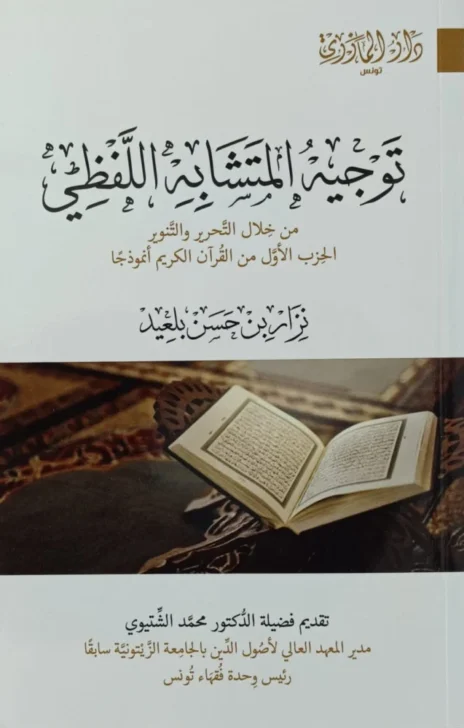 دار المازري
تونس
تَوْجِيهُ المُتَشَابِهِ اللَّفْظِيِّ
من خِلال التَّحرير والتَّنوير
الحِزب الأوَّل من القُرآن الكريم أنموذجًا
نِزَار بِن حَسَن بلعِيد
تقديم فضيلة الدُّكتور محمَّد الشَّتيوي
مدير المعهد العالي لأصُول الدِّين بالجامعة الزَّيتونيَّة سابقًا
رئيس وِحدة فُقهَاء تُونس